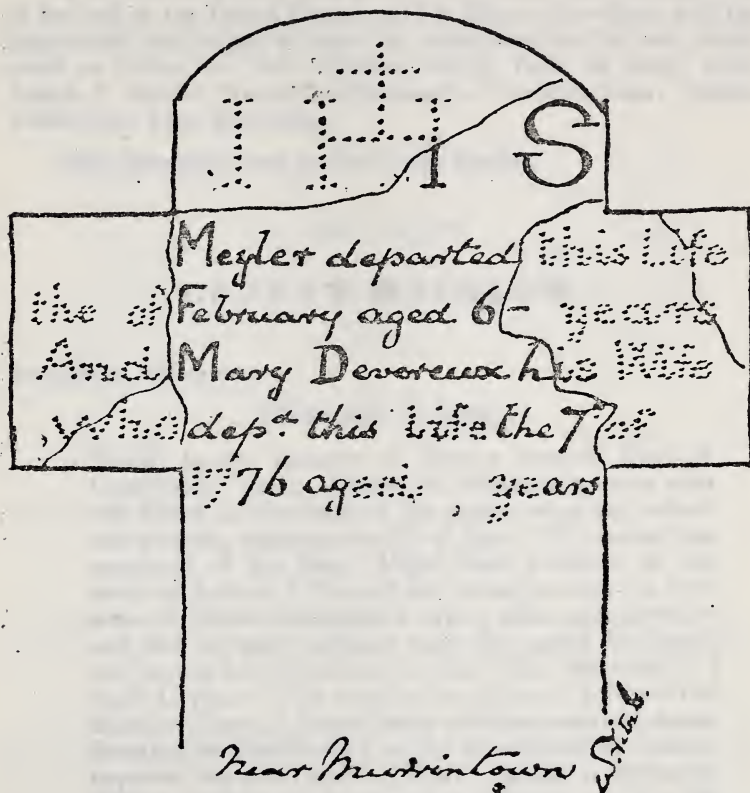 IHS
Meyler departed this Life
the of February aged 6- years
And Mary Devereux his Wife
who dep.d this Life the 7th of
1776 aged, years
Near Murrintown